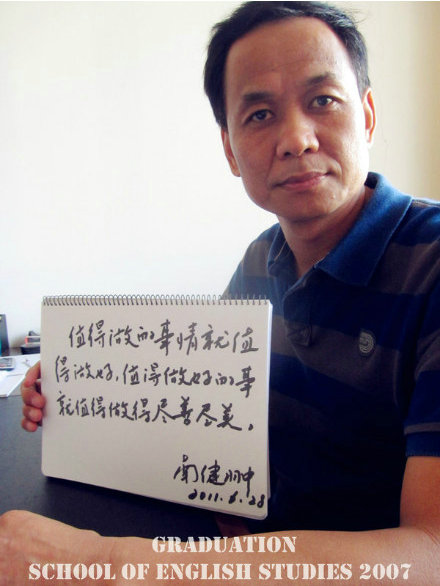 值得做的事情就值
得做好，值得做好的事
就值得做得尽善尽美。
南健翀
2011.6.28
GRADUATION
SCHOOL OF ENGLISH STUDIES 2007